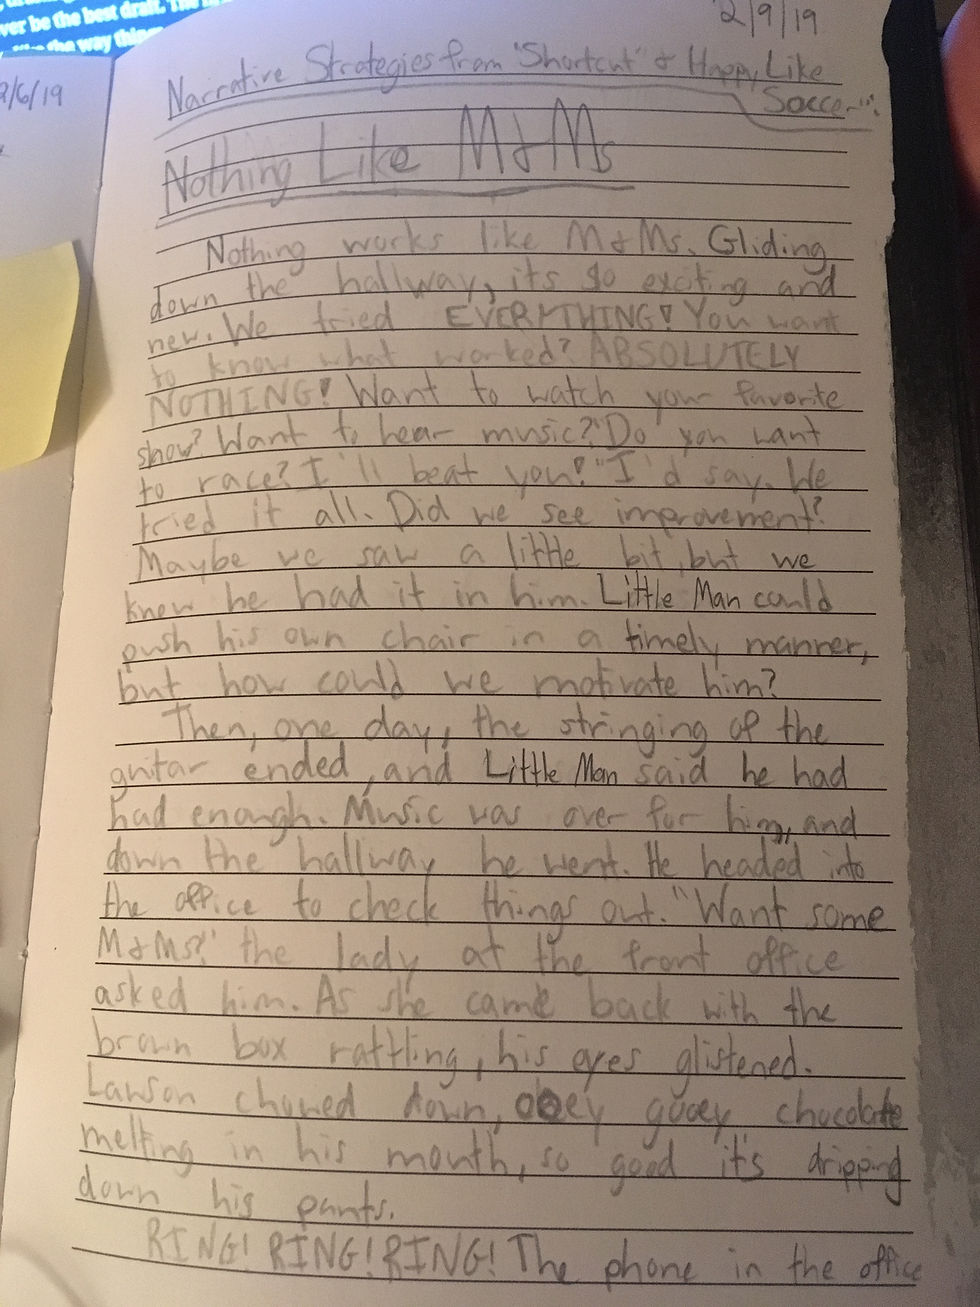 ver be the best draft. The
the way thing
2/6/19
2/9/19
Narrative Strategies from "Shortcut" & Happy Like
Soccer"
Nothing Like M&Ms
Nothing works like M&Ms. Gliding
down the hallway, its so exciting and
new. We tried EVERYTHING! You want
to know what worked? ABSOLUTELY
NOTHING! Want to watch your favorite
show? Want to hear music?" Do you want
to race? I'll beat you!" I'd say. We
tried it all. Did we see improvement?
Maybe we saw a little bit, but we
knew he had it in him. Little Man could
push his own chair in a timely manner,
but how could we motivate him?
Then, one day, the stringing of the
guitar ended, and Little Man said he had
had enough. Music was over for him, and
down the hallway he went. He headed into
the office to check things out. "Want some
M&Ms?" the lady at the front office
asked him. As she came back with the
brown box rattling, his eyes glistened.
Lawson chowed down, ooey gooey chocolate
melting in his mouth, so good it's dripping
down his pants.
RING! RING! RING! The phone in the office